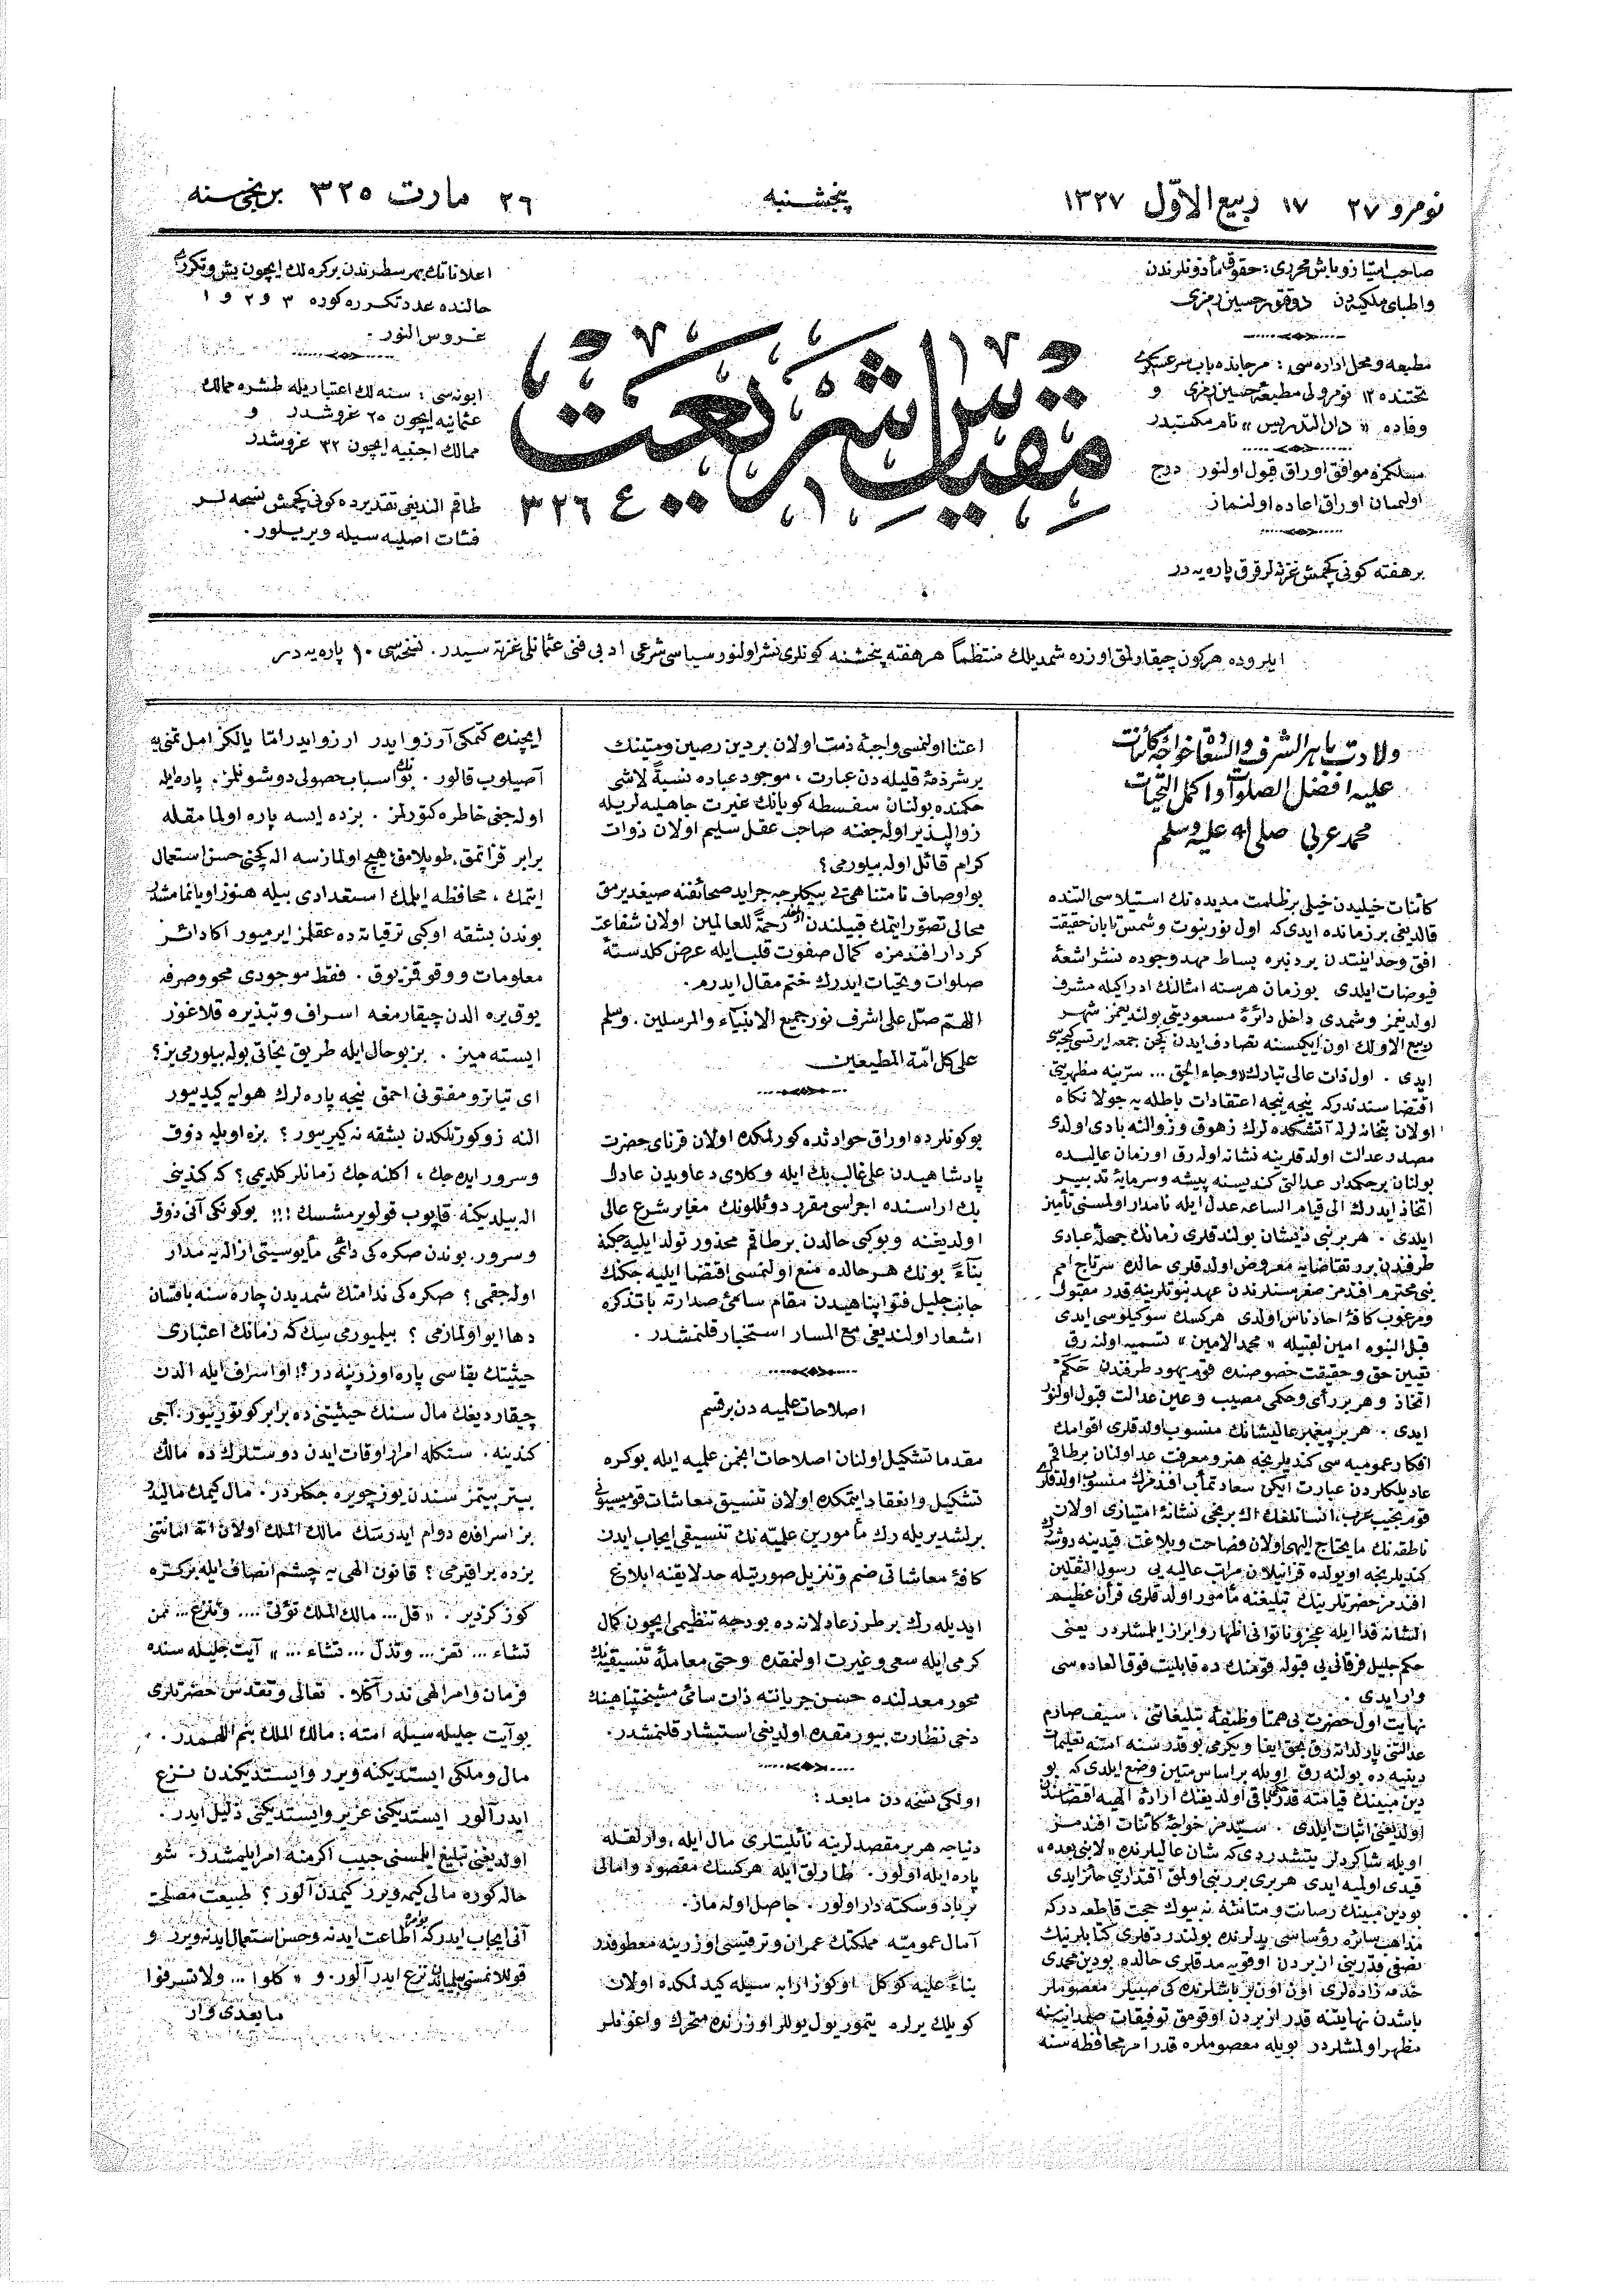 نومرو ٢٧ ١٧ ربيع الاوّل ١٣٢٧
پنجشنبه
٢٦ مارت ٣٢٥ برنجی سنه
صاحب امتیاز و باش محرری : حقوق مأذونلرندن
و اطبای ملکیه‌دن دوقتور حسین رمزی
مطبعه و محل اداره‌سی : مرجانده باب سرعسکری
تحتنده ١٢ نومرولی مطبعهٔ حسین رمزی و
وفاده « دار التدریس » نام مکتبدر
مسلکمزه موافق اوراق قبول اولنور درج
اولنمیان اوراق اعاده اولنماز
بر هفته کونی کچمش غزته‌لر قرق پاره‌یه در
مقیاس شریعت
٣٢٦
اعلاناتك بهر سطرندن بر کره‌لك ایچون بش و تکرری
حالنده عدد تکرره کوره ٣ و ٢ و ١
غروش النور .
ابونه‌سی : سنه‌لك اعتباریله طشره ممالك
عثمانیه ایچون ٢٥ غروشدر و
ممالك اجنبیه ایچون ٣٢ غروشدر
طاقم الندیغی تقدیرده کونی کچمش نسخه لر
فئات اصلیه سیله ویریلور .
ایلروده هرکون چیقارلمق اوزره شمدیلك منتظماً هر هفته پنجشنبه کونلری نشر اولنور سیاسی شرعی ادبی فنی عثمانلی غزته سیدر . نسخه‌سی ١٠ پاره‌یه در
ولادت باهر الشرف والسعادهٔ خواجهٔ کائنات
علیه افضل الصلوات و اکمل التحیات
محمد عربی صلی الله علیه وسلم
کائنات خیلیدن خیلی بر ظلمت مدیده نك استیلاسی التنده
قالدیغی بر زمانده ایدی که اول نور نبوت و شمس تابان حقیقت
افق وحدانیتدن بردنبره بساط مهد وجوده نشر اشعهٔ
فیوضات ایلدی بوزمان هر سنه امثالنك ادراکیله مشرف
اولدیغمز و شمدی داخل دائرهٔ مسعودیتی بولندیغمز شهر
ربیع الاولك اون ایکنسنه تصادف ایدن کچن جمعه ایرتسی کیجه‌سی
ایدی . اول ذات عالی تبارك « وجاء الحق ... سرّینه مظهریتی
اقتضاسندندرکه نیجه نیجه اعتقادات باطله یه جولانکاه
اولان بتخانه لرله آتشکده لرك زهوق و زوالنه بادی اولدی
مصدر عدالت اولدقلرینه نشانه اوله‌رق او زمان عالمده
بولنان بر حکمدار عدالتی کندیسنه پیشه و سرمایهٔ تدبیر
اتخاذ ایدرك الی قیام الساعه عدل ایله نامدار اولمسنی تأمین
ایلدی . هر بر نبی ذیشان بولندقلری زمانك جمله عبادی
طرفندن بر تقاضایه معروض اولدقلری حالده سرتاج امم
نبی محترم افندمز صغر سنلرندن عهد نبوتلرینه قدر مقبول
و مرغوب کافهٔ احاد ناس اولدی هرکسك سوکیلوسی ایدی
قبل النبوه امین لقبیله « محمد الامین » تسمیه اولنه‌رق
تعیین حق و حقیقت خصوصنده قوم یهود طرفندن حَکَم
اتخاذ و هر بر رأی و حکمی مصیب و عین عدالت قبول اولنور
ایدی . هر بر پیغمبر عالیشانك منسوب اولدقلری اقوامك
افکار عمومیه سی کندیلرینجه هنر و معرفت عد اولنان بر طاقم
قوم نجیب عرب، انسانلغك اك برنجی نشانهٔ امتیازی اولان
افندمز حضرتلرینك تبلیغنه مأمور اولدقلری قرآن عظیم
الشانه قدا ایله عجز و ناتوانی اظهار و ابراز ایلمشلردر یعنی
حکم جلیل فرقانی‌یی قبوله قومنك ده قابلیت فوق العاده سی
وار ایدی .
نهایت اول حضرت بی همتا وظیفهٔ تبلیغاتنی ، سیف صارم
دینیه ده بولنه‌رق اویله بر اساس متین وضع ایلدی که بو
اولدیغنی اثبات ایلدی . سیدمز خواجهٔ کائنات افندمز
اویله شاکردلر یتشدردی که شان عالیلرنده « لا نبی بعده »
قیدی اولمیه ایدی هربری بر نبی اولمق اقتداری حائز ایدی
بو دین مبینك رصانت و متانتنه نه بیوك حجت قاطعه در که
مذاهب سائره رؤساسی یدلرنده بولندردقلری کتابلرینك
نصفی قدرینی ازبردن اوقویه مدقلری حالده بو دین محمدی
باشدن نهایتنه قدر ازبردن اوقومق توفیقات صمدانیسنه
مظهر اولمشلردر بویله معصوملره قدر امر محافظه سنه
اعتنا اولنمسی واجبهٔ ذمت اولان بر دین رصین و متینك
بر شرذمهٔ قلیله دن عبارت ، موجود عباده نسبةً لاشی
حکمنده بولنان سفسطه کویانك غیرت جاهلیه لریله
زوالپذیر اوله جغنه صاحب عقل سلیم اولان ذوات
کرام قائل اوله بیلورمی ؟
بو اوصاف نامتناهی‌یی بیکلرجه جراید صحائفنه صیغدیرمق
محالی تصوّر ایتمك قبیلندن اولمغله رحمةً للعالمین اولان شفاعت
کردار افندمزه کمال صفوت قلب ایله عرض کلدستهٔ
صلوات و تحیات ایدرك ختم مقال ایدرم .
اللهم صلّ علی اشرف نور جمیع الانبیآء والمرسلین . وسلم
علی کل امّة المطیعین
بوکونلرده اوراق حوادثده کورلمکده اولان قرنای حضرت
پادشاهیدن علی غالب بك ایله وکلای دعاویدن عادل
بك اراسنده اجراسی مقرر دوئللونك مغایر شرع عالی
اولدیغنه و بوکبی حالدن بر طاقم محذور تولد ایلیه جکنه
بناءً بونك هر حالده منع اولنمسی اقتضا ایلیه جکنك
جانب جلیل فتوا پناهیدن مقام سامئ صدارته باتذکره
اشعار اولندیغی مع المسار استخبار قلنمشدر .
اصلاحات علمیه دن بر قسم
مقدما تشکیل اولنان اصلاحات انجمن علمیه ایله بوکره
تشکیل و انعقاد ایتمکده اولان تنسیق معاشات قومیسیونی
برلشدیریله رك مأمورین علمیّه نك تنسیقی ایجاب ایدن
کافهٔ معاشاتی ضم و تنزیل صورتیله حد لایقنه ابلاغ
ایدیله رك بر طرز عادلانه ده بودجه تنظیمی ایچون کمال
کرمی ایله سعی و غیرت اولنمقده و حتی معاملهٔ تنسیقیه نك
محور معدلنده حسن جریاننه ذات سامئ مشیختپناهینك
دخی نظارت بیورمقده اولدیغی استبشار قلنمشدر .
اولکی نسخه دن مابعد :
دنیاجه هر بر مقصدلرینه نائلیتلری مال ایله ، وارلقله
پاره ایله اولور . طارلق ایله هرکسك مقصود و امالی
برباد و سکته دار اولور . حاصل اوله ماز .
آمال عمومیّه مملکتك عمران و ترقیسی اوزرینه معطوفدر
بناءً علیه کوکل اوکوز ارابه سیله کیدلمکده اولان
کویلك یرلره یتمور یول یوللر اوزرنده متحرك واغونلر
ایچنده کتمکی آرزو ایدر ارزو ایدر اما یالکز امل تمنی‌یه
آصیلوب قالور . بونك اسباب حصولی دوشونلمز . پاره ایله
اوله جغی خاطره کتورلمز . بزده ایسه پاره اولما مقله
برابر قزانمق ، طوپلامق هیچ اولمازسه اله کچنی حسن استعمال
ایتمك ، محافظه ایلمك استعدادی بیله هنوز اویانمامشدر
بوندن بشقه اوکبی ترقیاته ده عقلمز ایرمیور اکا دائر
معلومات و وقوفمز یوق . فقط موجودی محو و صرفه
یوق یره الدن چیقارمغه اسراف و تبذیره قلاغوز
ایسته میز . بز بو حال ایله طریق نجاتی بوله بیلورمی یز ؟
ای تیاترو مفتونی احمق نیجه پاره لرك هوایه کیدییور
النه زوکورتلکدن بشقه نه کیریور ؟ بزه اویله ذوق
و سرور ایده جك ، اکلنه جك زمانلر کلدیمی ؟ که کندینی
اله بیلدیکنه قاپوب قولویرمشسك !!! بوکونکی آنی ذوق
و سرور، بوندن صکره کی دائمی مأیوسیتی ازاله یه مدار
اوله جقمی ؟ صکره کی ندامتك شمدیدن چاره سنه باقسان
دها ایو اولمازمی ؟ بیلمیورمی سك که زمانك اعتباری
حیثیتك بقاسی پاره اوزرینه در ؟! او اسراف ایله الدن
چیقاردیغك مال سنك حیثیتنی ده برابر کوتوریور . آجی
کندینه . سنکله امرار اوقات ایدن دوستلرك ده مالك
بیتر بیتمز سندن یوز چویره جکلردر . مال کیمك مالیدر
بز اسرافده دوام ایدرسك مالك الملك اولان الله امانتنی
بزده براقیرمی ؟ قانون الهی یه چشم انصاف ایله بر کره
کوز کزدیر . « قل ... مالك الملك تؤتی .... وتنزع ... ممن
تشاء ... تعز ... وتذل ... تشاء ... » آیت جلیله سنده
فرمان و امر الهی ندر آکلا . تعالی و تقدس حضرتلری
بو آیت جلیله سیله امته : مالك الملك بنم الهمدر .
مال و ملکی ایستدیکنه ویرر و ایستدیکندن نزع
ایدر آلور ایستدیکنی عزیز و ایستدیکنی ذلیل ایدر .
اولدیغنی تبلیغ ایلمسنی حبیب اکرمنه امر ایلمشدر . شو
حاله کوره مالی کیمه ویرر کیمدن آلور ؟ طبیعت مصلحت
آنی ایجاب ایدرکه اطاعت ایدنه و حسن استعمال ایدنه ویرر و
قوللانمسنی بیلمیاندن نزع ایدر آلور . و « کلوا ... ولا تسرفوا
مابعدی وار